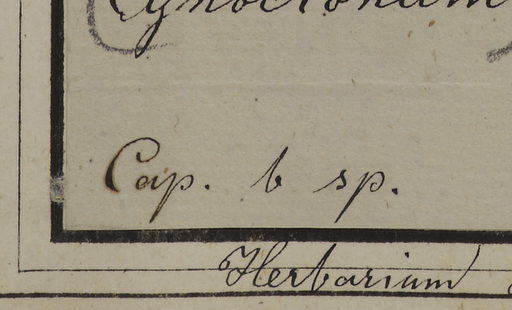 Cynoctonum
Cap. b sp.
Herbarium